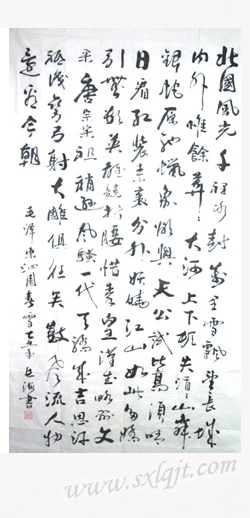 北國風光千里冰封萬里雪飄望長城
内外惟餘莽莽大河上下頓失滔滔山舞
銀蛇原馳蠟象欲與天公試比高須晴
日看紅裝素裹分外妖嬈江山如此多嬌
引無數英雄競折腰惜秦皇漢武略輸文
采唐宗宋祖稍遜風騷一代天驕成吉思汗
祗識彎弓射大雕俱往矣數風流人物
還看今朝
毛澤東沁園春雪
www.sxlqjt.com